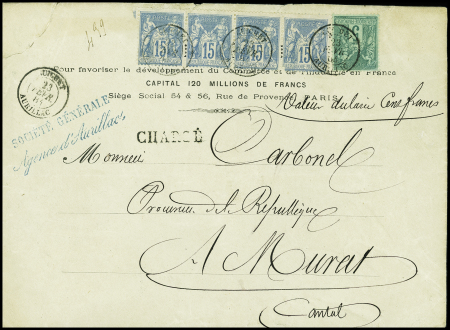 n 99
15 15 15 15 5
Pour favoriser le développement du Commerce et de l'Industrie en France
CAPITAL 120 MILLIONS DE FRANCS
Siège Social 54 & 56, Rue de Provence, PARIS
Valeur déclarée Cent francs
AURILLAC
SOCIÉTÉ GÉNÉRALE
Agence d'Aurillac
CHARGÉ
Monsieur Carbonel
Procureur de la République
A Murat
Cantal